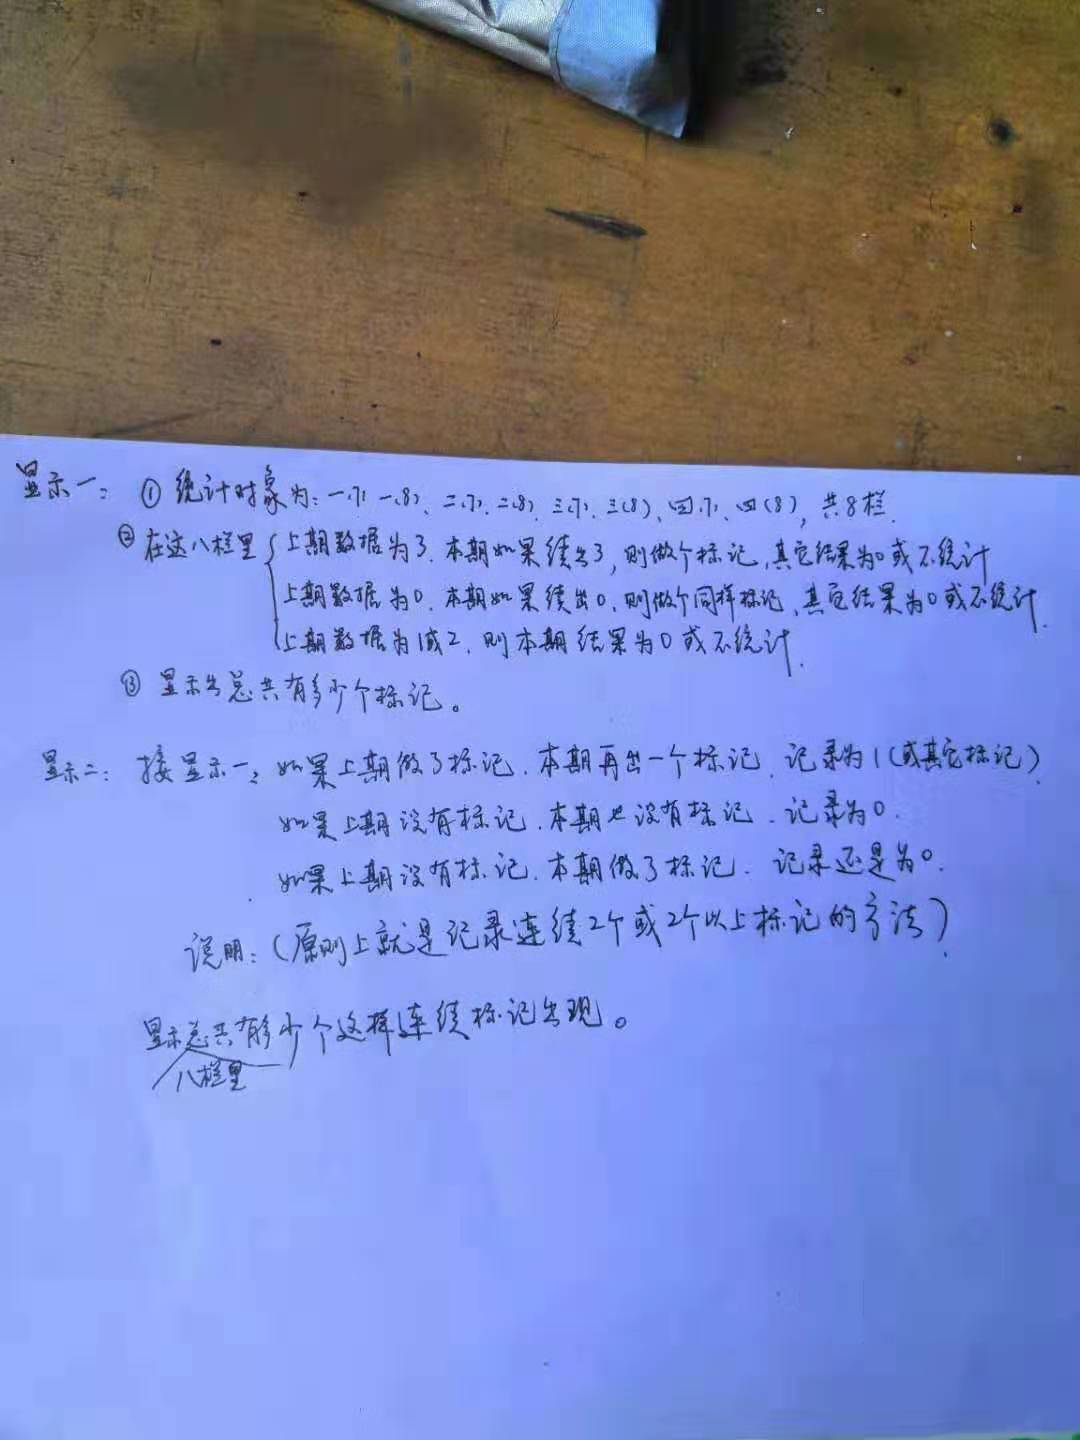 显示一：①统计对象为：一(7)、一(8)、二(7)、二(8)、三(7)、三(8)、四(7)、四(8)，共8栏.
②在这八栏里{上期数据为3.本期如果续出3，则做个标记，其它结果为0或不统计
上期数据为0.本期如果续出0，则做个同样标记、其它结果为0或不统计.
上期数据为1或2，则本期结果为0或不统计.
③显示出总共有多少个标记。
显示二：接显示一：如果上期做了标记.本期再出一个标记.记录为1(或其它标记).
如果上期没有标记.本期也没有标记.记录为0.
如果上期没有标记.本期做了标记.记录还是为0.
说明：(原则上就是记录连续2个或2个以上标记的方法).
显示总共有多少个这样连续标记出现。
八栏里